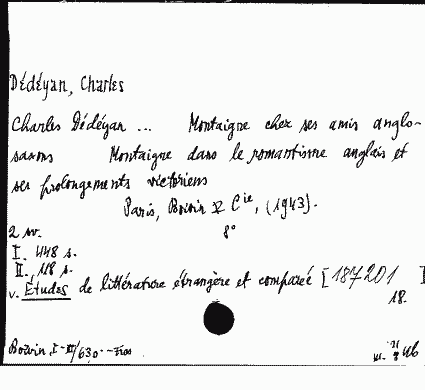 Dédéyan, Charles
Charles Dédéyan ... Montaigne chez ses amis anglo-
saxons Montaigne dans le romantisme anglais et
ses prolongements victoriens
Paris, Boivin & Cie, (1943).
2 sv. 8°
I. 448 s.
II. 118 s.
v. Études de littérature étrangère et comparée [187201]
18.
Boivin, I-II/630.-Fros